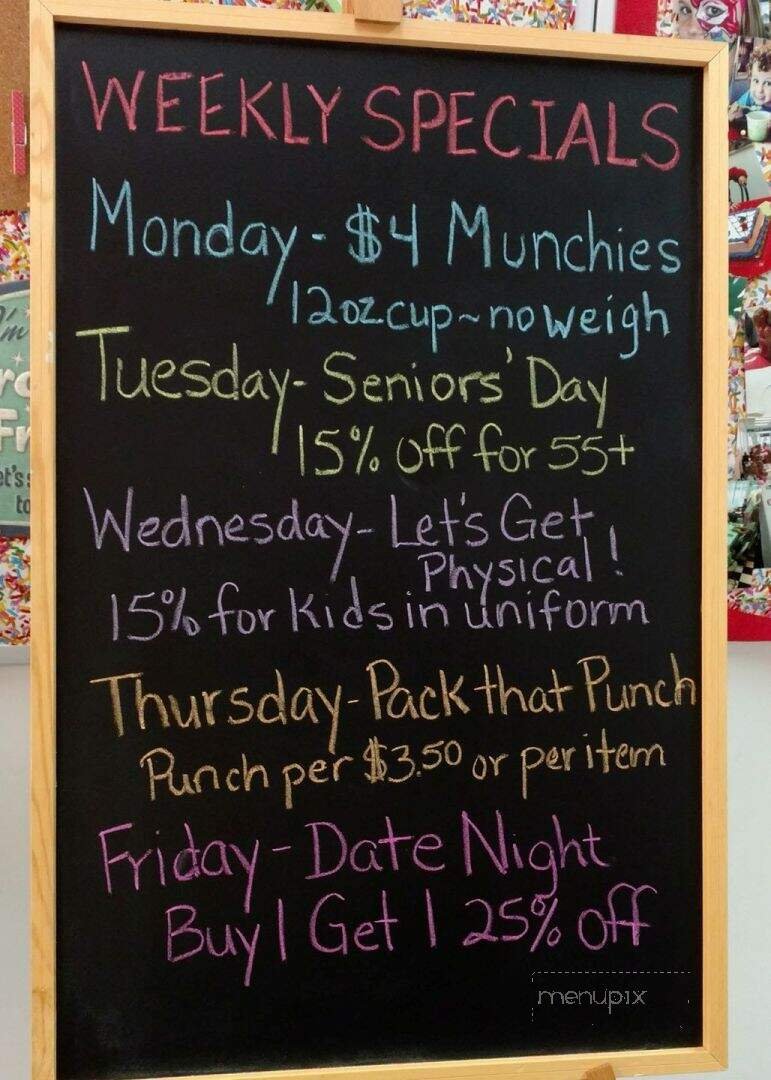 WEEKLY SPECIALS
Monday - $4 Munchies
12oz cup ~ no weigh
Tuesday - Seniors' Day
15% off for 55+
Wednesday - Let's Get
Physical!
15% for kids in uniform
Thursday - Pack that Punch
Punch per $3.50 or per item
Friday - Date Night
Buy 1 Get 1 25% off
menupix